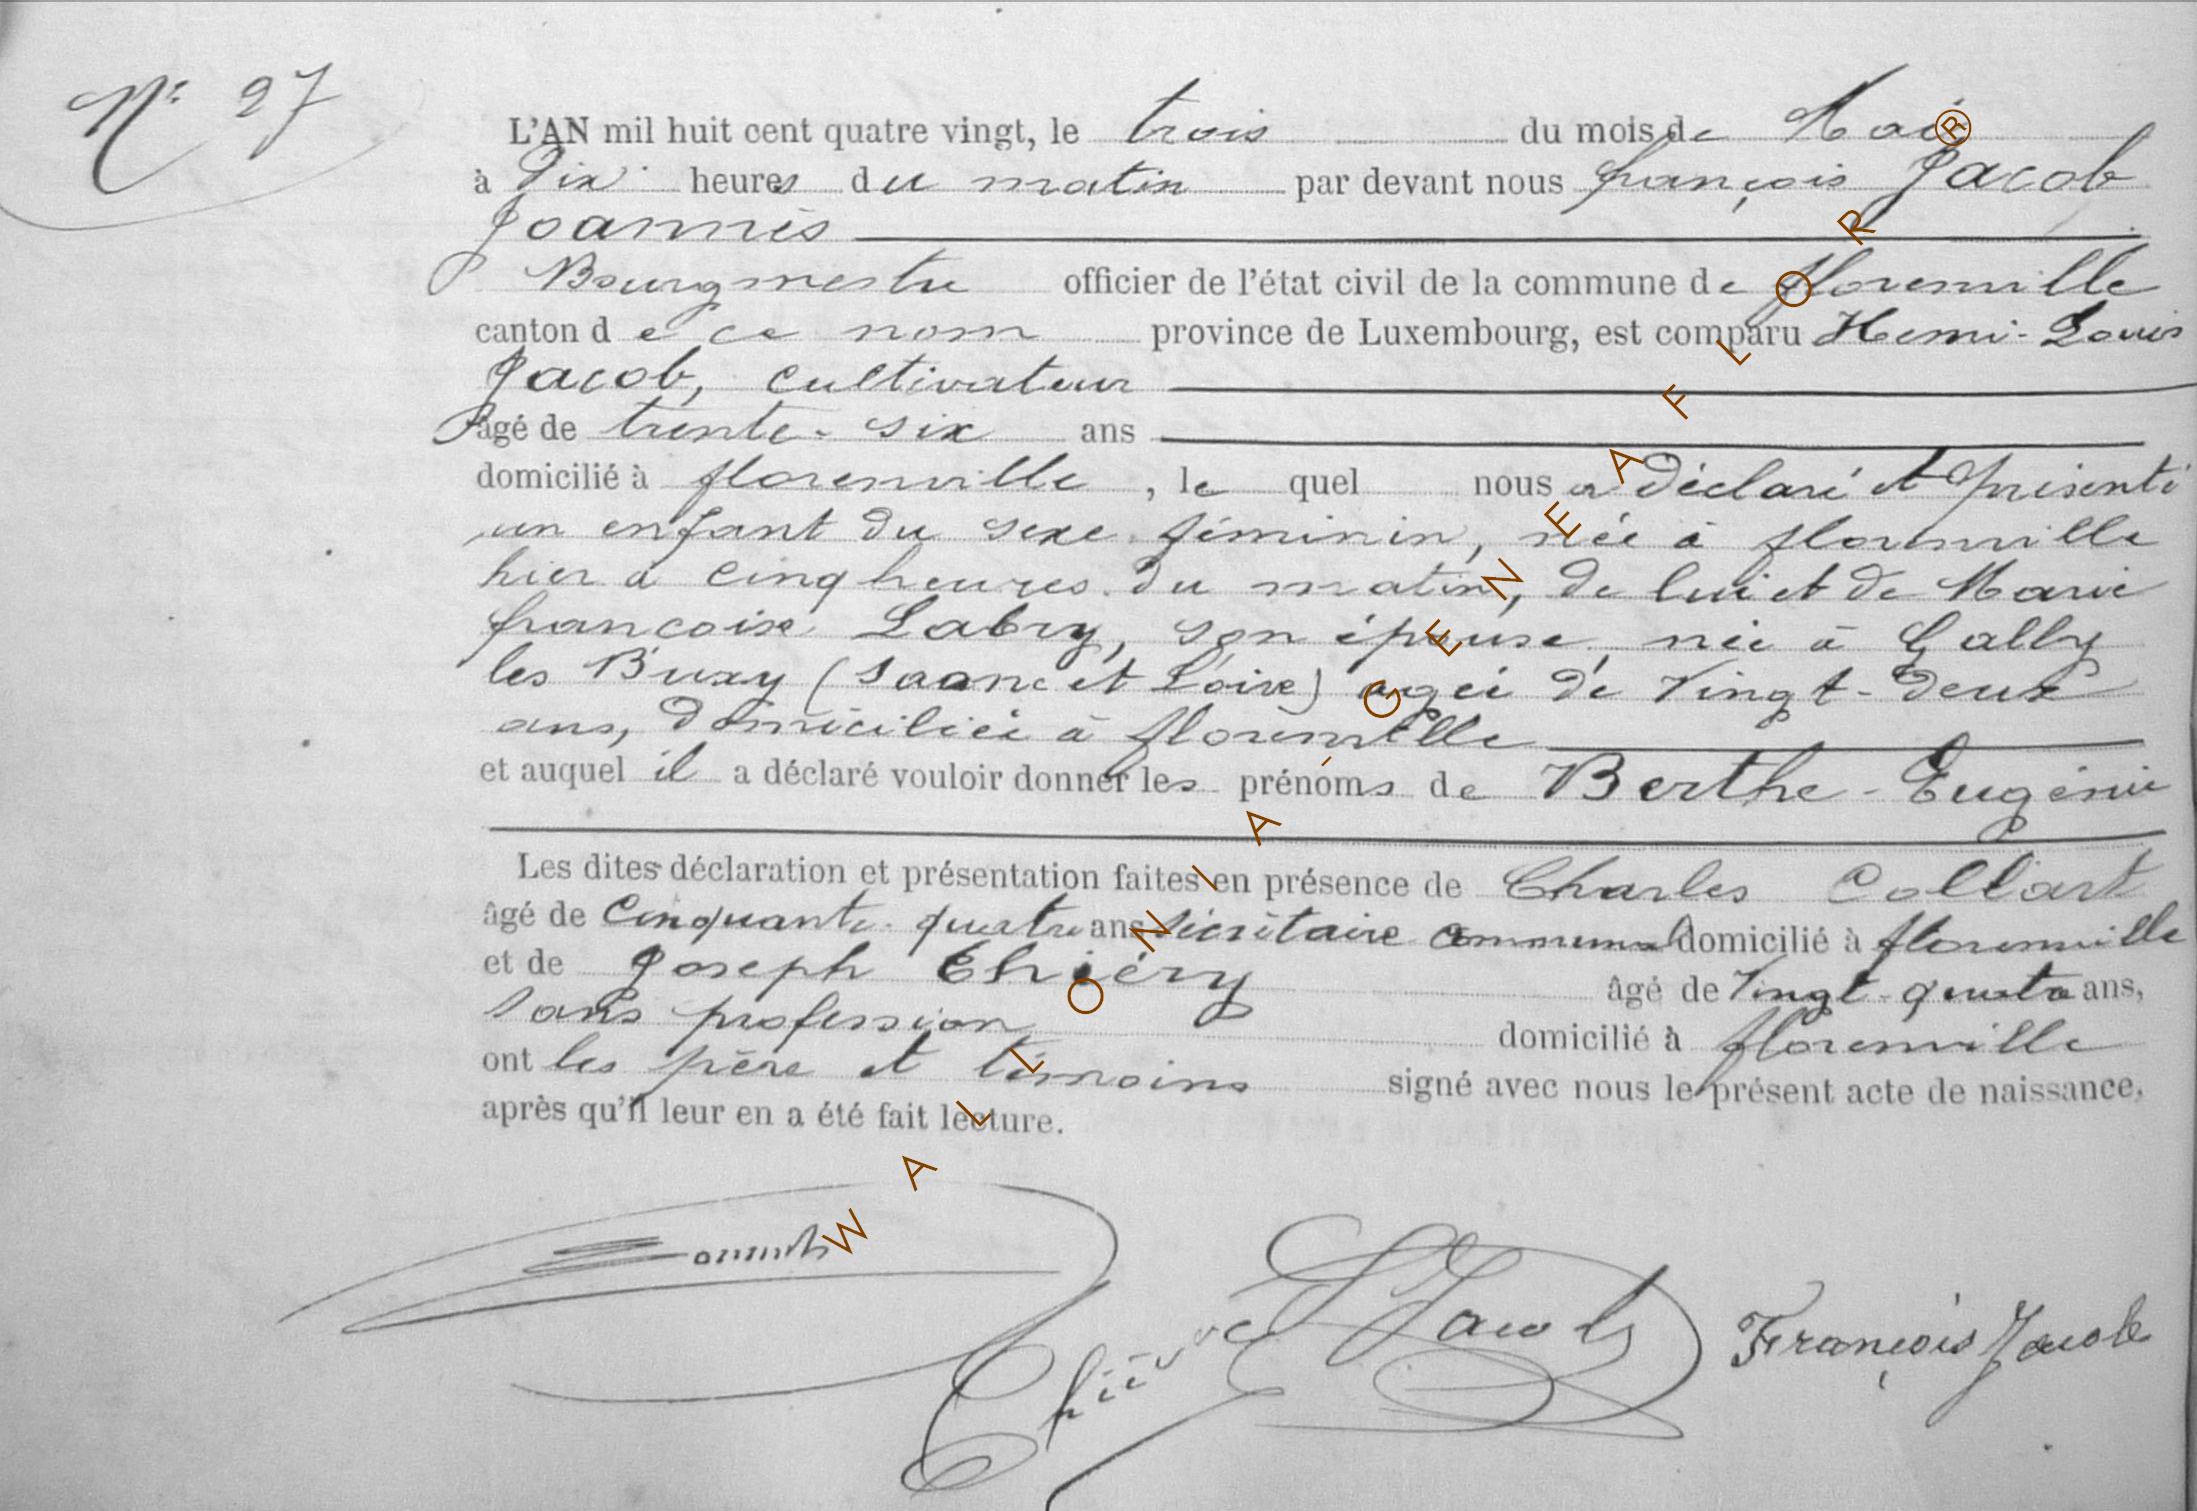 Nº 27
L'AN mil huit cent quatre vingt, le trois du mois de Mai
à Dix heures du matin par devant nous françois Jacob
Joannès
Bourgmestre officier de l'état civil de la commune de florenville
canton de ce nom province de Luxembourg, est comparu Henri-Louis
Jacob, cultivateur
âgé de trente-six ans
domicilié à florenville, le quel nous a déclaré et présenté
un enfant du sexe féminin, née à florenville
hier à cinq heures du matin, de lui et de Marie
francoise Labry, son épouse née à
les Buxy (Saone et Loire) agée de Vingt-deux
ans, domiciliée à florenville
et auquel il a déclaré vouloir donner les prénoms de Berthe-Eugénie
Les dites déclaration et présentation faites en présence de Charles Collart
âgé de Cinquante-quatre ans Sécrétaire communal domicilié à florenville
et de Joseph Thiéry âgé de Vingt-quatre ans,
Sans profession domicilié à florenville
ont les père et témoins signé avec nous le présent acte de naissance,
après qu'il leur en a été fait lecture.
Jacob François Jacob
WALLONIA GÉNÉAFLOR ®